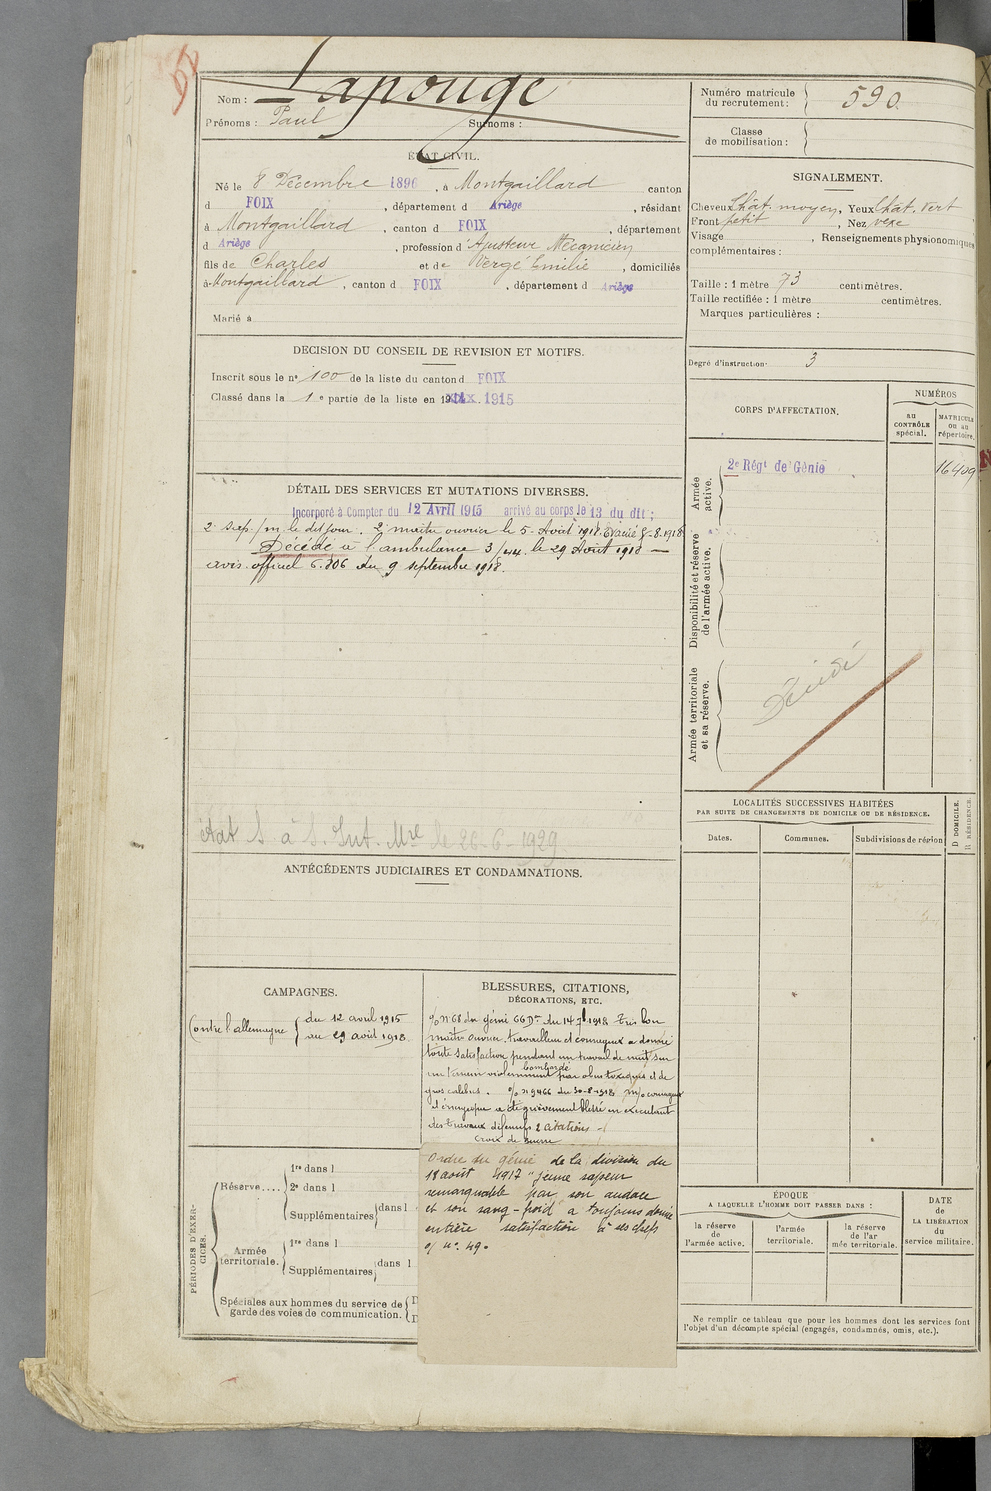 Nom : Lapouge
Prénoms : Paul Surnoms :
ÉTAT CIVIL.
Né le 8 Décembre 1896, à Montgaillard canton
d FOIX, département d Ariège, résidant
à Montgaillard, canton d FOIX, département
d Ariège, profession d'Ajusteur Mécanicien
fils de Charles et de Vergé Emilie, domiciliés
à Montgaillard, canton d FOIX, département d Ariège
Marié à
DECISION DU CONSEIL DE REVISION ET MOTIFS.
Inscrit sous le nº 100 de la liste du canton d FOIX
Classé dans la 1e partie de la liste en 1915
DÉTAIL DES SERVICES ET MUTATIONS DIVERSES.
Incorporé à Compter du 12 Avril 1915 arrivé au corps le 13 du dit ;
2e sap/m le dit jour. 2e maître ouvrier le 5 Août 1918. Evacué 8-8-1918
Décédé à l'ambulance 3/44 le 29 Août 1918 —
avis officiel 6.806 du 9 septembre 1918.
état S à S. Int. Mre le 26-6-1929
ANTÉCÉDENTS JUDICIAIRES ET CONDAMNATIONS.
CAMPAGNES.
Contre l'allemagne { du 12 avril 1915
au 29 août 1918.
BLESSURES, CITATIONS,
DÉCORATIONS, ETC.
o/ n 68 du génie 66 Don du 14 7b 1918 très bon
maître ouvrier. travailleur et courageux a donné
toute satisfaction pendant un travail de nuit sur
un terrain violemment bombardé par obus toxiques et de
gros calibres. o/ n 9466 du 30-8-1918 m/o courageux
et énergique a été grièvement blessé en exécutant
des travaux défensifs 2 citations -
Croix de guerre
Ordre du génie de la division du
18 août 1917 "jeune sapeur
remarquable par son audace
et son sang-froid a toujours donné
entière satisfaction à ses chefs
o/ nº 49.
PÉRIODES D'EXERCICES.
Réserve....
1re dans l
2e dans l
Supplémentaires dans l
Armée territoriale.
1re dans l
Supplémentaires dans l
Spéciales aux hommes du service de
garde des voies de communication.
Numéro matricule
du recrutement : 590
Classe
de mobilisation :
SIGNALEMENT.
Cheveux Chât. moyen, Yeux Chât. vert
Front petit, Nez vexe
Visage , Renseignements physionomiques
complémentaires :
Taille : 1 mètre 73 centimètres.
Taille rectifiée : 1 mètre centimètres.
Marques particulières :
Degré d'instruction · 3
CORPS D'AFFECTATION.
NUMÉROS
au
CONTRÔLE
spécial.
MATRICULE
ou au
répertoire.
Armée
active.
2e Régt de Génie 16409
Disponibilité et réserve
de l'armée active.
Armée territoriale
et sa réserve.
Décédé
LOCALITÉS SUCCESSIVES HABITÉES
PAR SUITE DE CHANGEMENTS DE DOMICILE OU DE RÉSIDENCE.
Dates. Communes. Subdivisions de région
D DOMICILE.
R RÉSIDENCE.
ÉPOQUE
A LAQUELLE L'HOMME DOIT PASSER DANS :
la réserve
de
l'armée active.
l'armée
territoriale.
la réserve
de l'ar
mée territoriale.
DATE
de
LA LIBÉRATION
du
service militaire.
Ne remplir ce tableau que pour les hommes dont les services font
l'objet d'un décompte spécial (engagés, condamnés, omis, etc.).